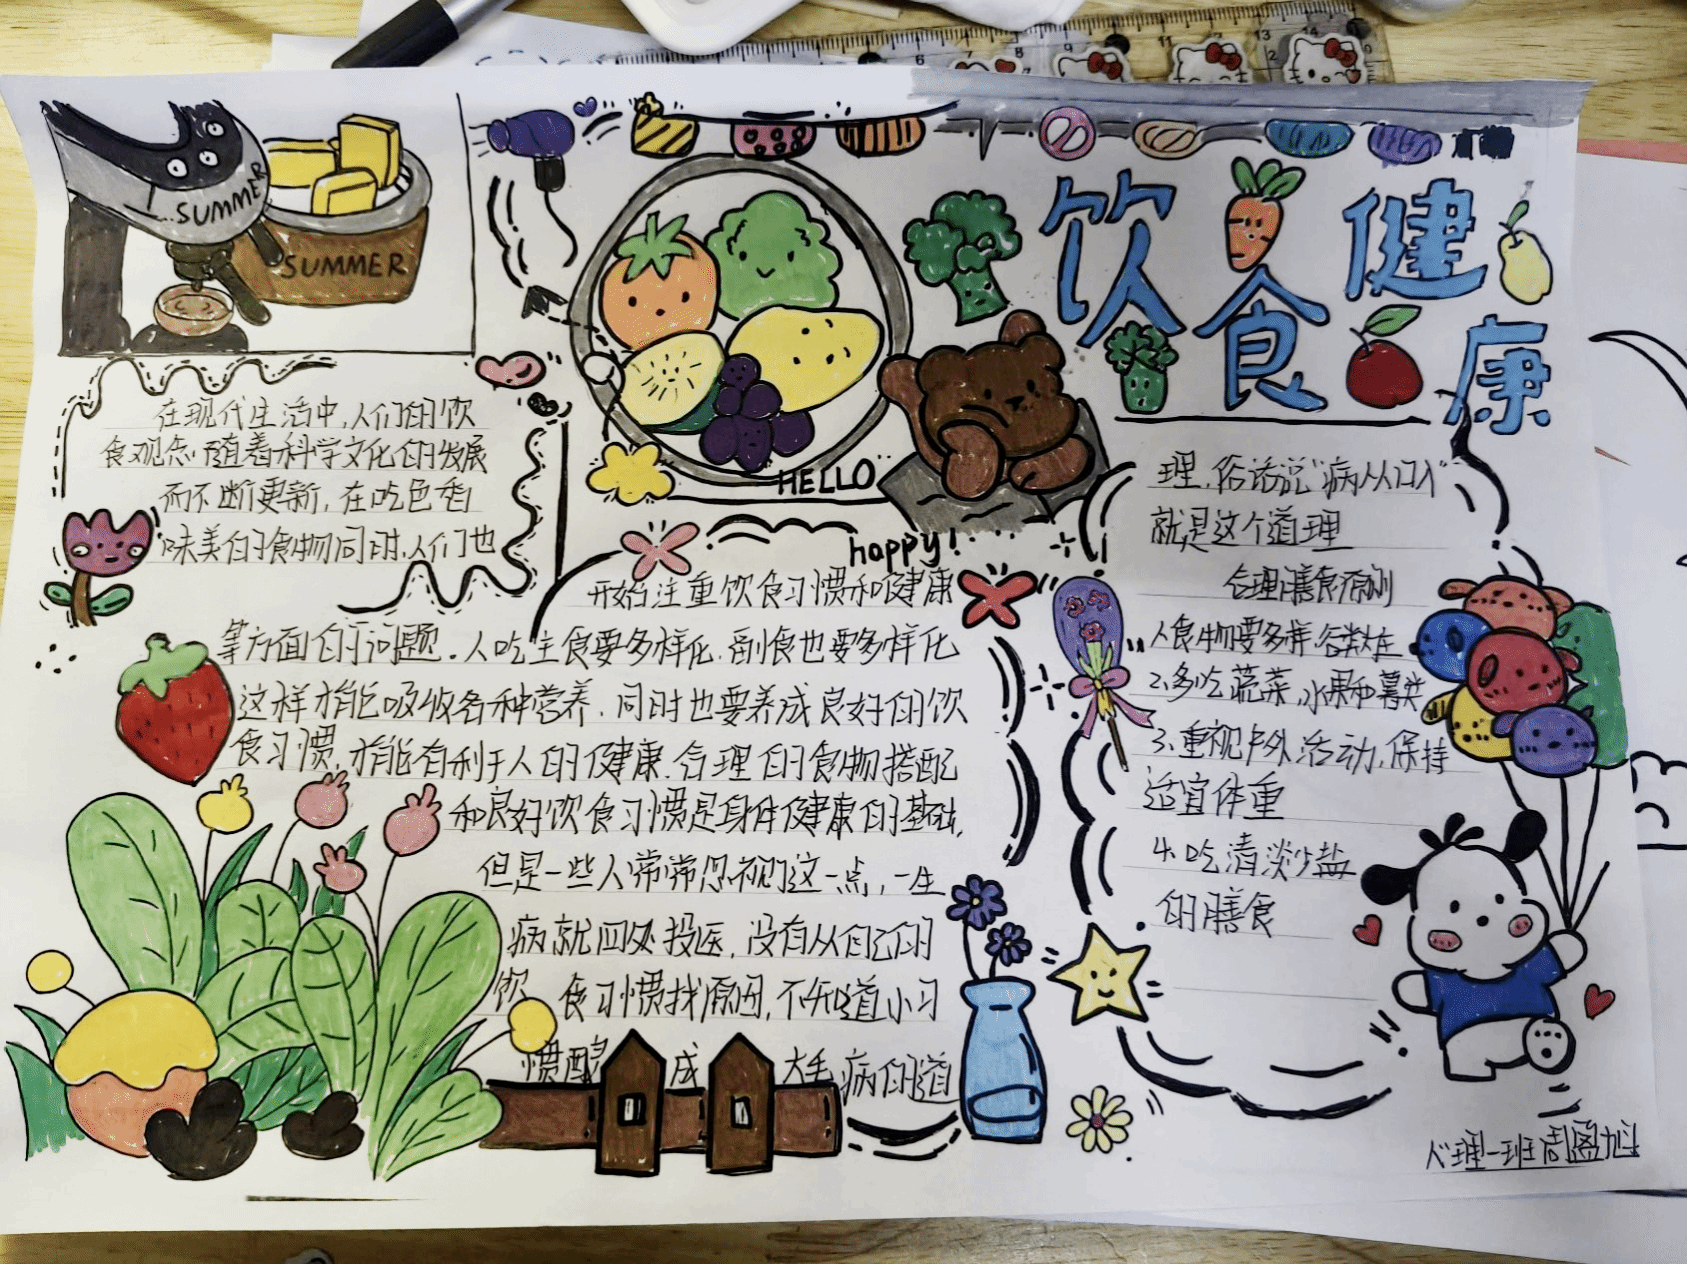 饮食健康
SUMMER
SUMMER
HELLO
happy!
在现代生活中,人们的饮
食观念随着科学文化的发展
而不断更新,在吃色香
味美的食物同时,人们也
开始注重饮食习惯和健康
等方面的问题.人吃主食要多样化.副食也要多样化
这样才能吸收各种营养.同时也要养成良好的饮
食习惯,才能有利于人的健康.合理的食物搭配
和良好饮食习惯是身体健康的基础,
但是一些人常常忽视了这一点,一生
病就四处投医,没有从自己的
饮食习惯找原因,不知道小习
惯酿成大毛病的道
理,俗话说"病从口入"
就是这个道理
合理膳食原则
食物要多样,谷类为主
2、多吃蔬菜,水果和薯类
3、重视户外活动,保持
适宜体重
4、吃清淡少盐
的膳食
心理一班周